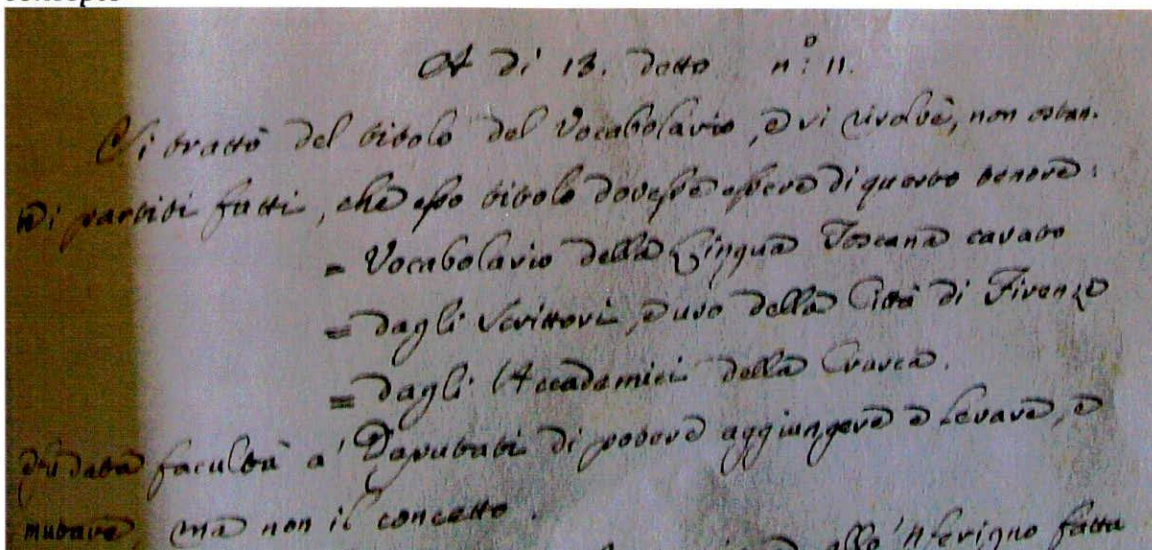 A dì 13. detto n.º 11.
Si trattò del titolo del Vocabolario, e vi risolvè, non ostan-
ti partiti fatti, che esso titolo dovesse essere di questo tenore:
= Vocabolario della Lingua Toscana cavato
= dagli Scrittori, e uso della Città di Firenze
= dagli Accademici della Crusca.
E fu data facultà a' Deputati di potere aggiungere e levare, e
mutare, ma non il concetto.
allo 'nferigno fatta